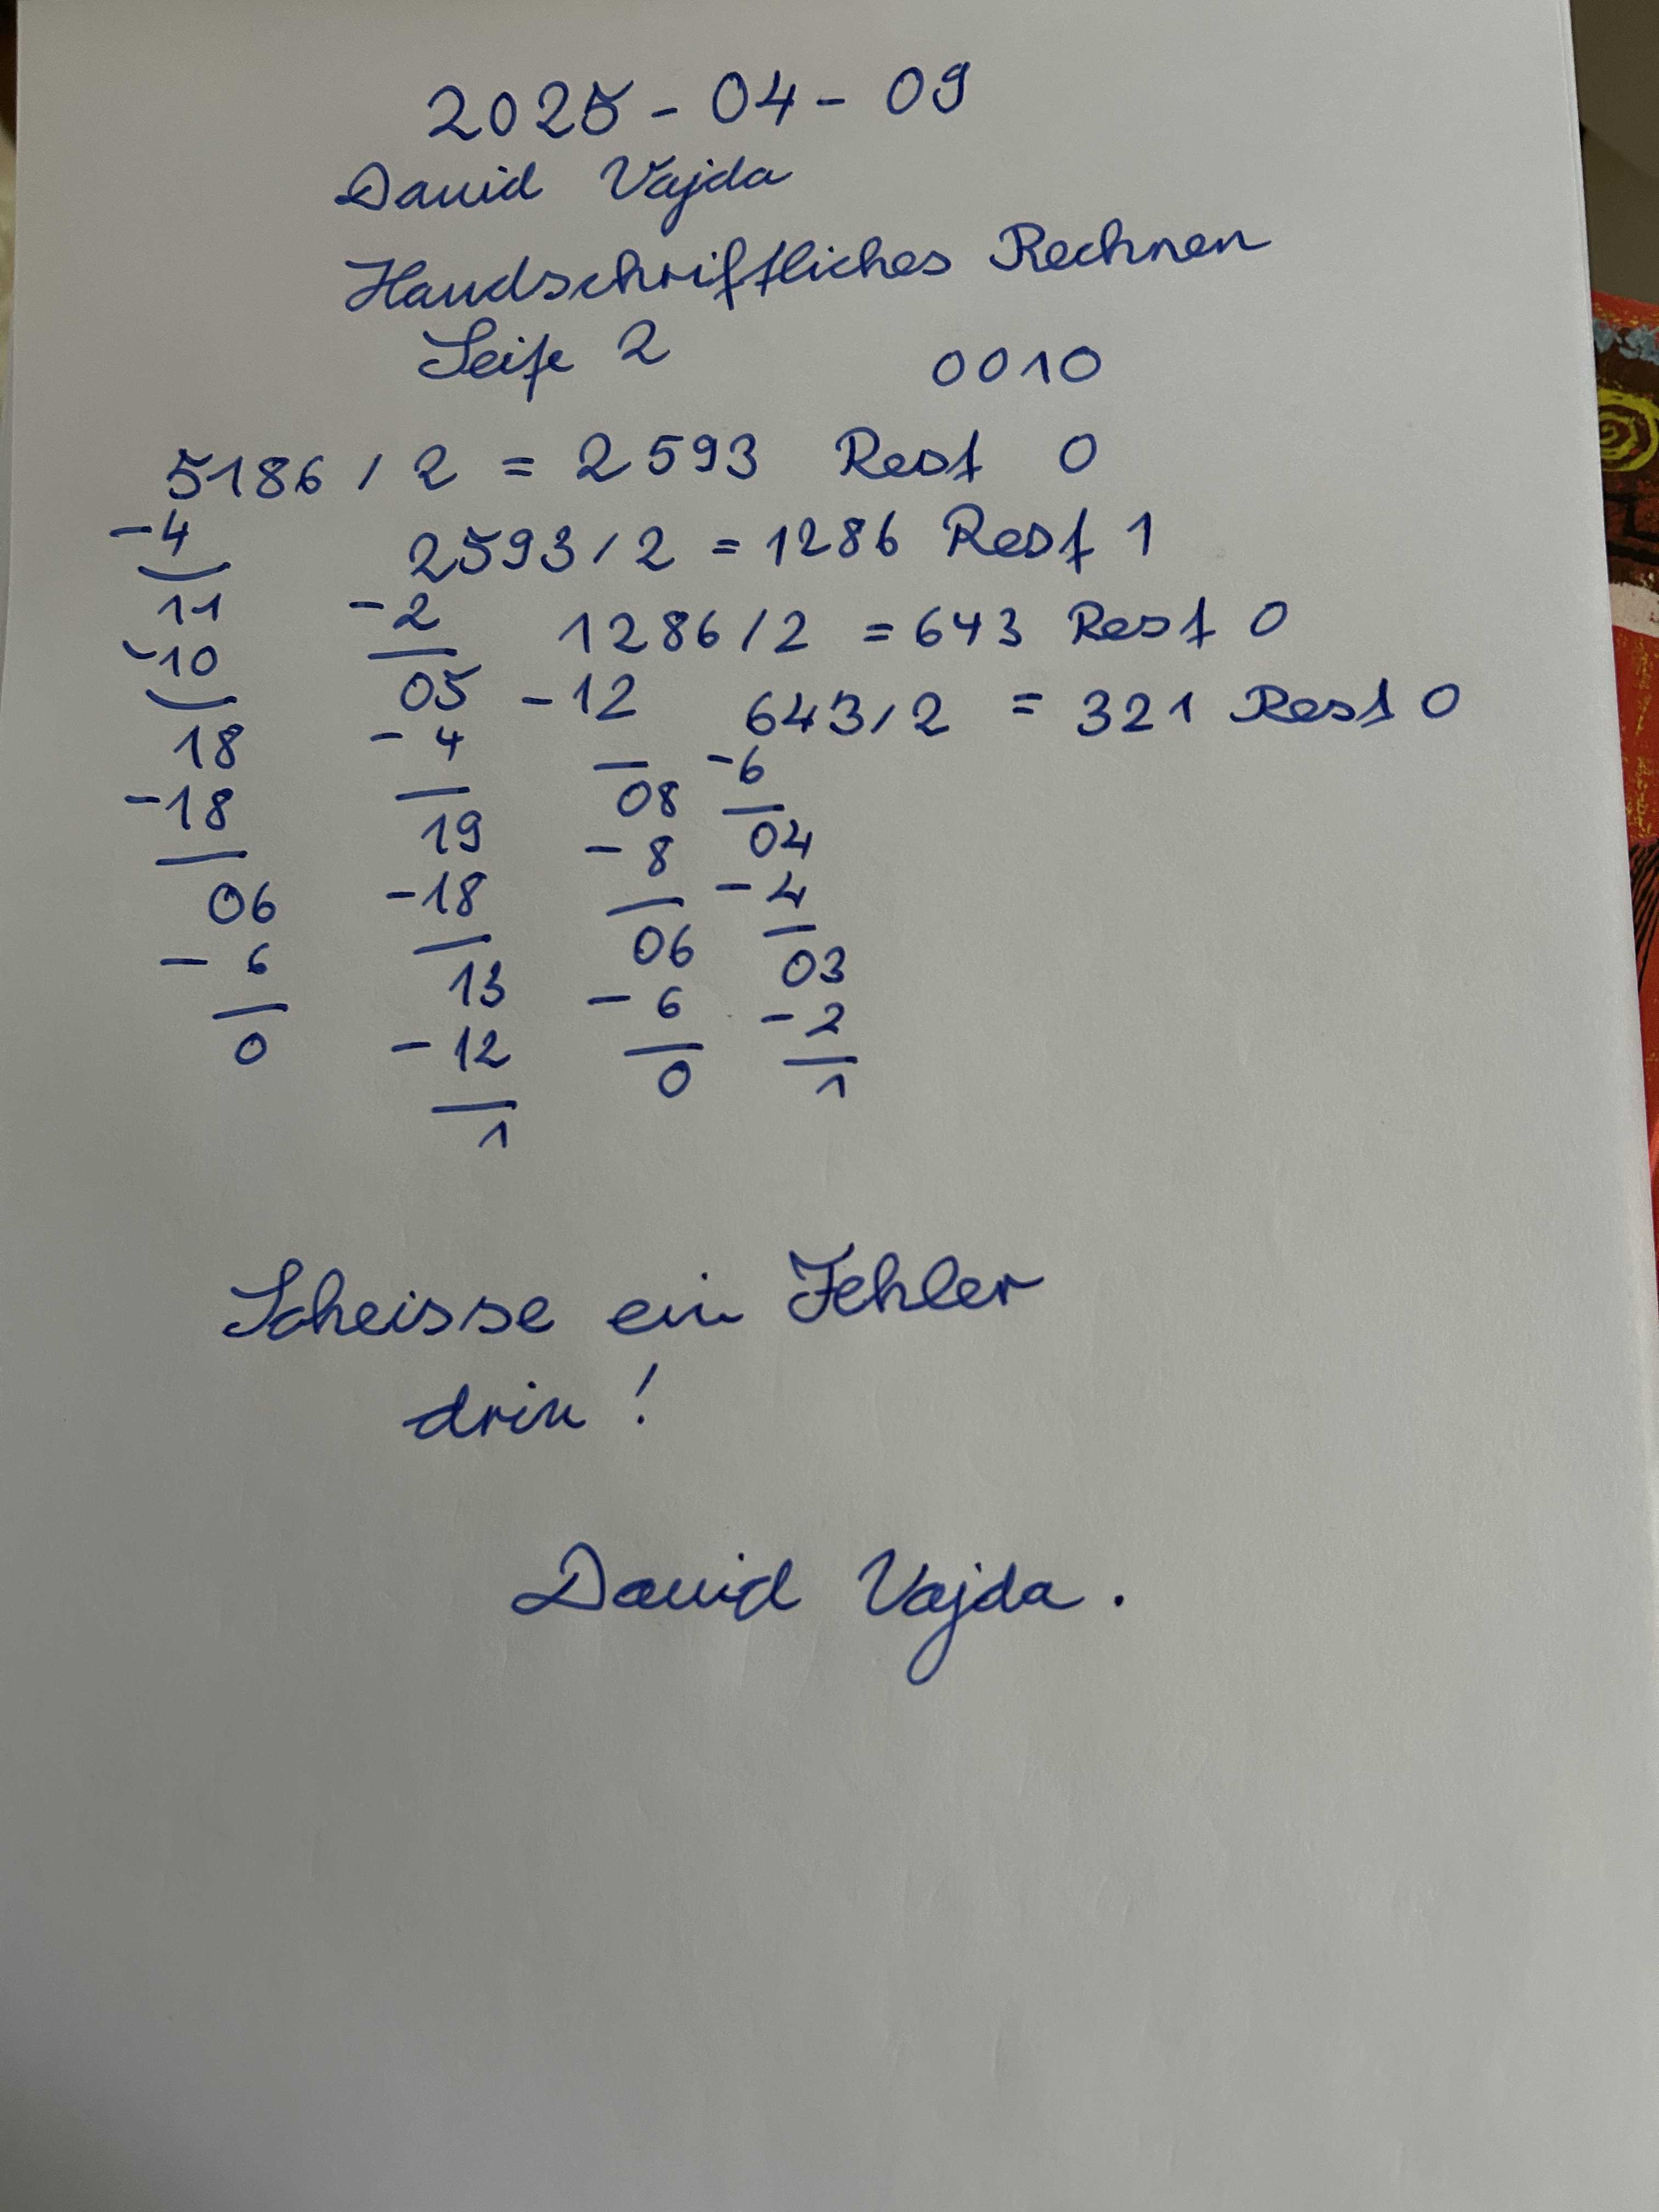 2025 - 04 - 09
David Vajda
Handschriftliches Rechnen
Seite 2 0010
5186 / 2 = 2593 Rest 0
-4 2593 / 2 = 1286 Rest 1
11 -2 1286 / 2 = 643 Rest 0
-10 05 -12 643 / 2 = 321 Rest 0
18 - 4 08 -6
-18 19 - 8 04
06 -18 06 - 4
- 6 13 - 6 03
0 - 12 0 - 2
1 1
Scheisse ein Fehler
drin !
David Vajda .